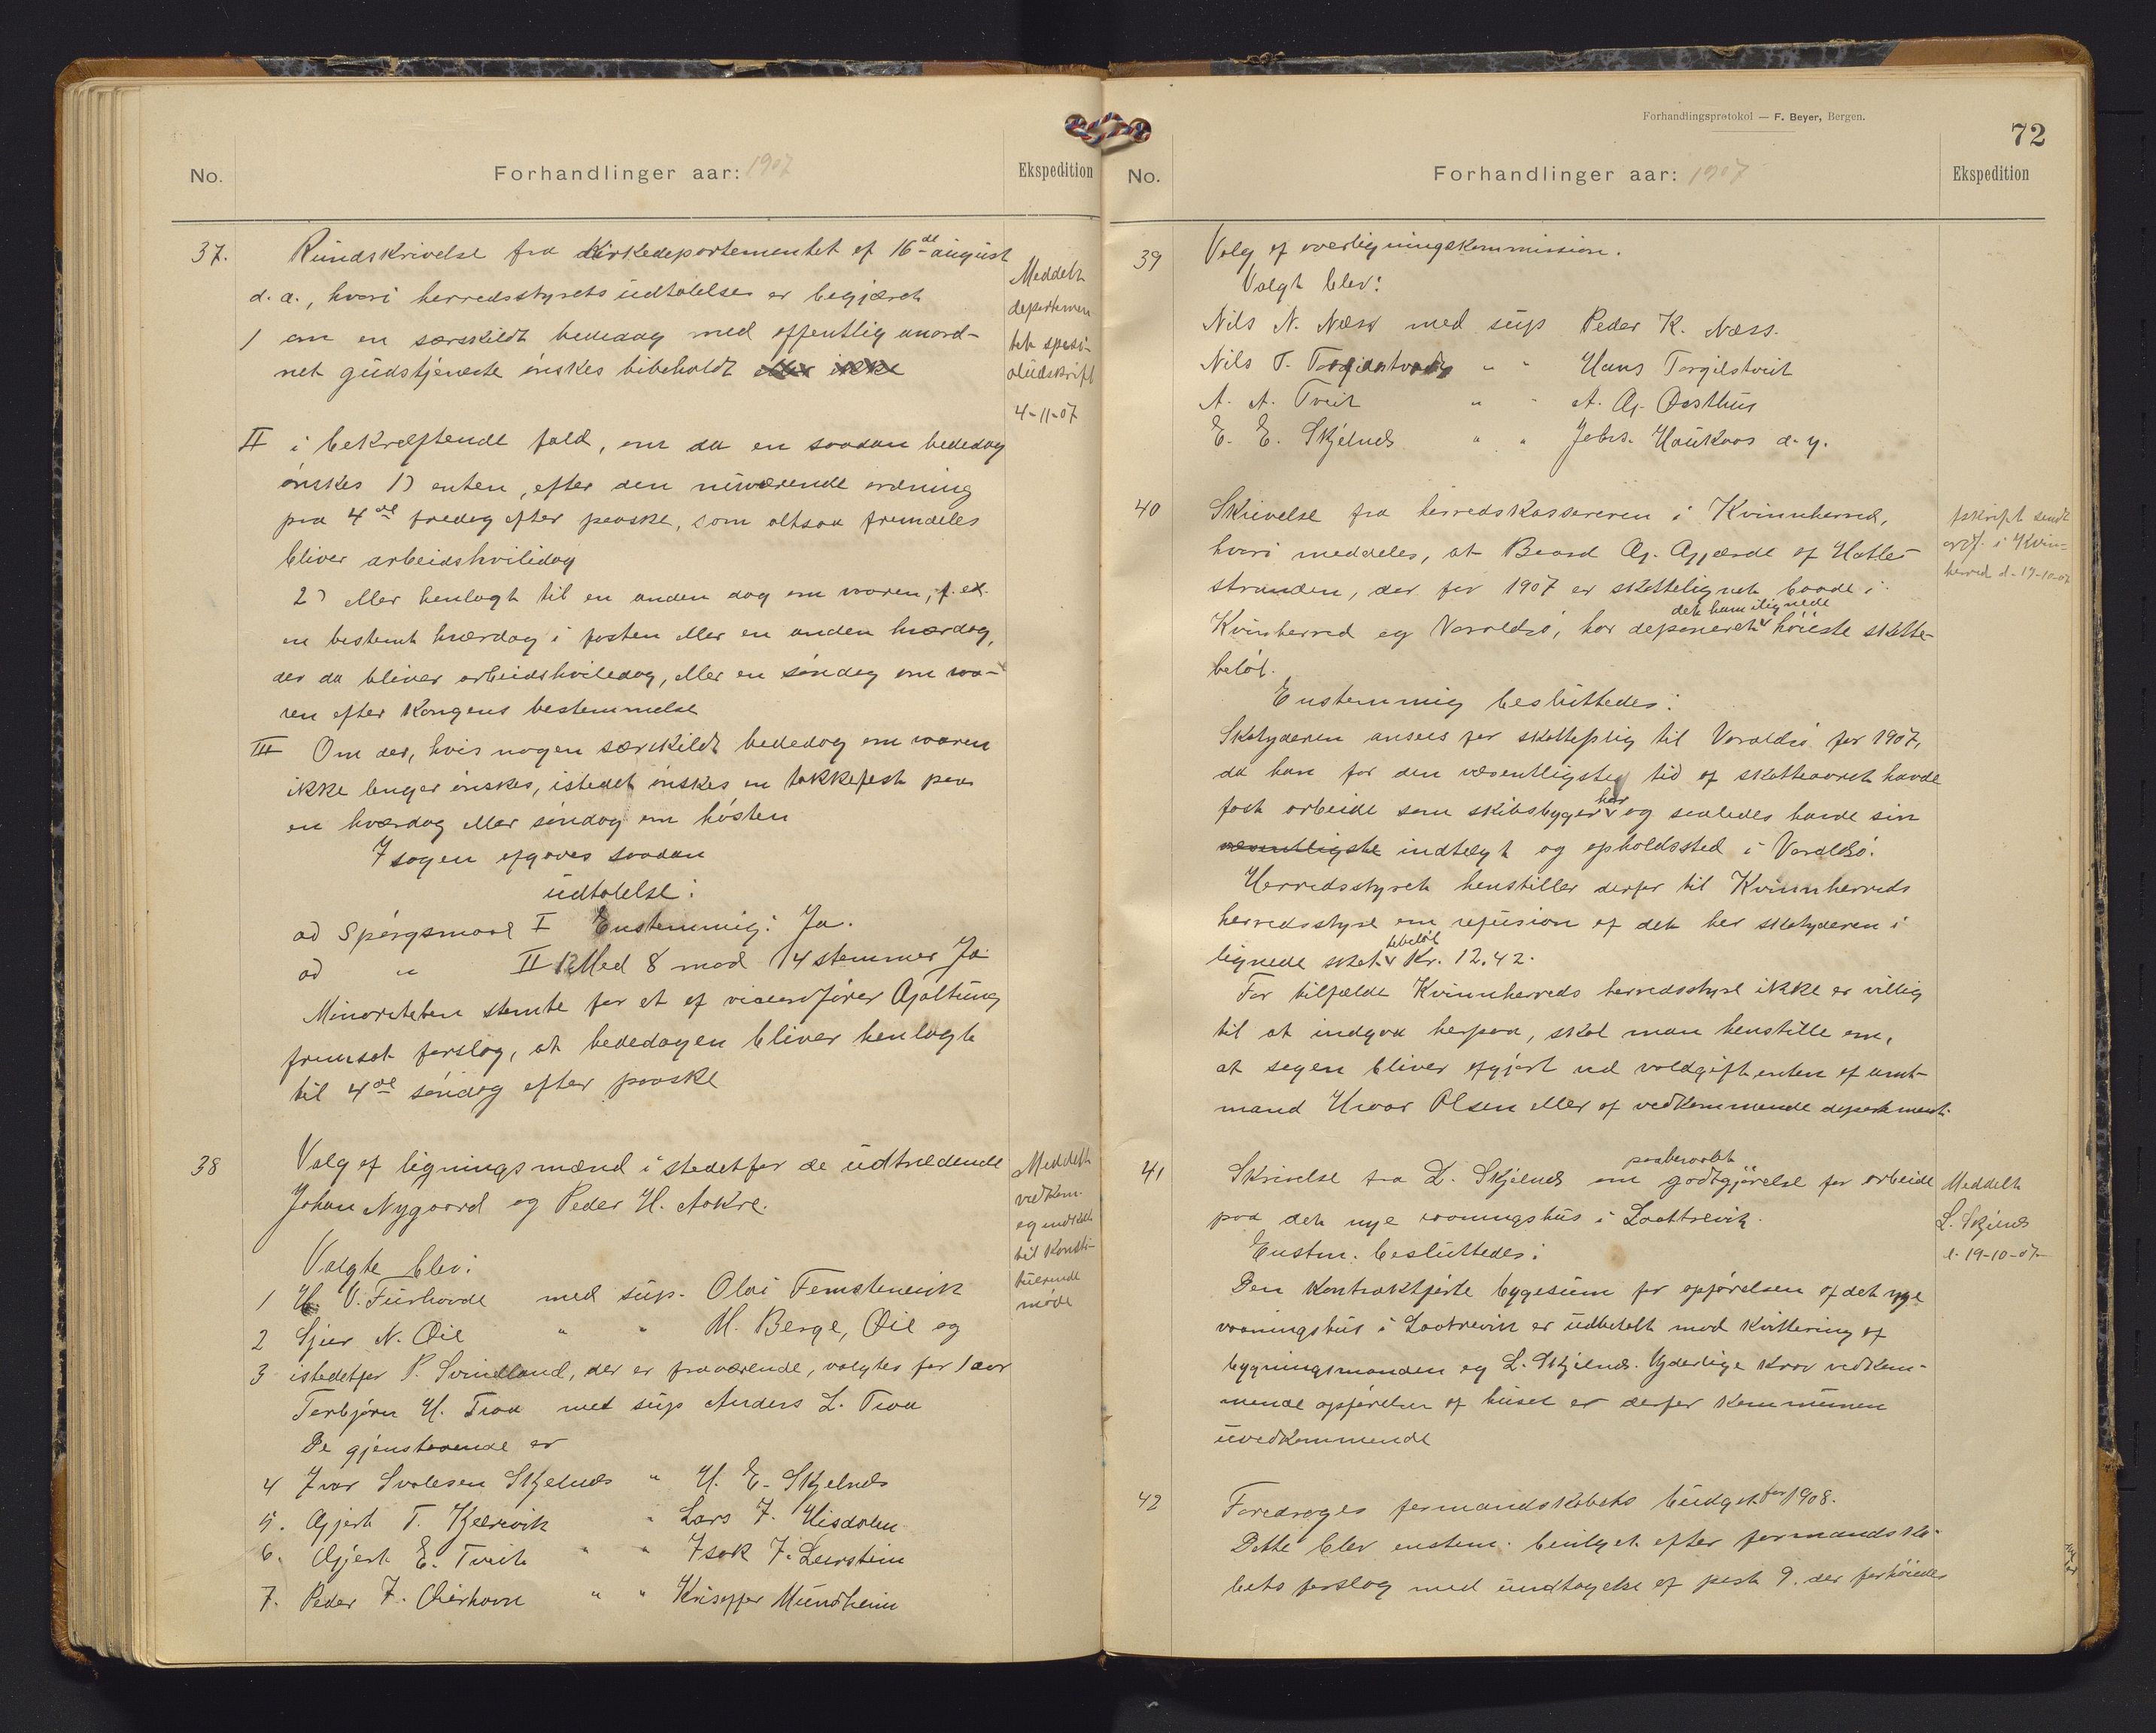 No.
Forhandlinger aar: 1907
Ekspedition
37. Rundskrivelse fra Kirkedepartementet af 16de august
d. a., hvori herredsstyrets udtalelse er begjæret
I om en særskildt bededag med offentlig anord-
net gudstjeneste ønskes bibeholdt eller ikke
II i bekræftende fald, om da en saadan bededag
ønskes 1) enten, efter den nuværende ordning
paa 4de fredag efter paaske, som altsaa fremdeles
bliver arbeidshviledag
2) eller henlagt til en anden dag om vaaren, f. ex.
en bestemt hverdag i fasten eller en anden hverdag,
der da bliver arbeidshviledag, eller en søndag om vaa-
ren efter Kongens bestemmelse
III Om der, hvis nogen særskildt bededag om vaaren
ikke lenger ønskes, istedet ønskes en takkefest paa
en hverdag eller søndag om høsten
I sagen afgaves saadan
udtalelse:
ad Spørgsmaal I Enstemmig: Ja.
ad " II 1) Med 8 mod 4 stemmer Ja
Minoriteten stemte for et af viceordfører Gjøltung
fremsat forslag, at bededagen bliver henlagte
til 4de søndag efter paaske
Meddelt
departemen
tet spesi-
aludskrift
4-11-07
38 Valg af ligningsmænd istedetfor de udtrædende
Johan Nygaard og Peder H. Aakre.
Valgte blev:
1 H. V. Furhovde med sup. Olai Femstenevik
2 Sjur N. Øie " " M. Berge, Øie og
3 istedetfor P. Svindland, der er fraværende, valgtes for 1 aar
Torbjørn H. Tvaa med sup Anders L. Tvaa
De gjenstaaende er
4 Ivar Svalesen Skjelnes " H. E. Skjelnes
5. Gjert T. Kjærevik " Lars J. Hisdalen
6. Gjert E. Tveit " " Isak J. Leirstein
7. Peder J. Øierhavn " " Kristoffer Mundheim
Meddelt
vedkom.
og indkaldt
til Konsti-
tuerende
møde
Forhandlingsprotokol — F. Beyer, Bergen.
72
No.
Forhandlinger aar: 1907
Ekspedition
39 Valg af overligningskommission.
Valgt blev:
Nils N. Næss med sup Peder K. Næss.
Nils T. " " Hans Torgilstveit
A. A. Tveit " " A. Aj. Øasthus
E. E. Skjelnes " " Johs. Haukaas d. y.
40 Skrivelse fra herredskassereren i Kvinnherred,
hvori meddeles, at Baard Aj. Gjærde af Hatle-
stranden, der for 1907 er skattelignet baade i
Kvinherred og Varaldsø, har deponeret det ham ilignede høieste skatte-
beløb.
Enstemmig besluttedes:
Skatyderen ansees for skattepligtig til Varaldsø for 1907,
da han for den væsentligste tid af skatteaaret havde
fast arbeide som skibsbygger her og saaledes havde sin
væsentligste indtægt og opholdssted i Varaldsø.
Herredsstyret henstiller derfor til Kvinnherreds
herredsstyre om refusion af det her skatyderen i
lignede skattebeløb Kr. 12.42.
For tilfælde Kvinnherreds herredsstyre ikke er villig
til at indgaa herpaa, skal man henstille om,
at sagen bliver afgjort ved voldgift enten af amt-
mand Hroar Olsen eller af vedkommende departement.
Afskrift sendt
ordf. i Kvin-
herred d. 19-10-07
41 Skrivelse fra L. Skjelnes om paaberaabt godtgjørelse for arbeide
paa det nye vaaningshus i Laatrevik.
Enstm. besluttedes:
Den kontraktfæste byggesum for opførelsen af det nye
vaaningshus i Laatrevik er udbetalt mod kvittering af
bygningsmanden og L. Skjelnes. Yderlige krav vedkom-
mende opførelsen af huset er derfor kommunen
uvedkommende
Meddelt
L. Skjelnes
d. 19-10-07
42 Foredroges formandskabets budget for 1908.
Dette blev enstem. bevilget efter formandska-
bets forslag med undtagelse af post 9. der forhøiedes